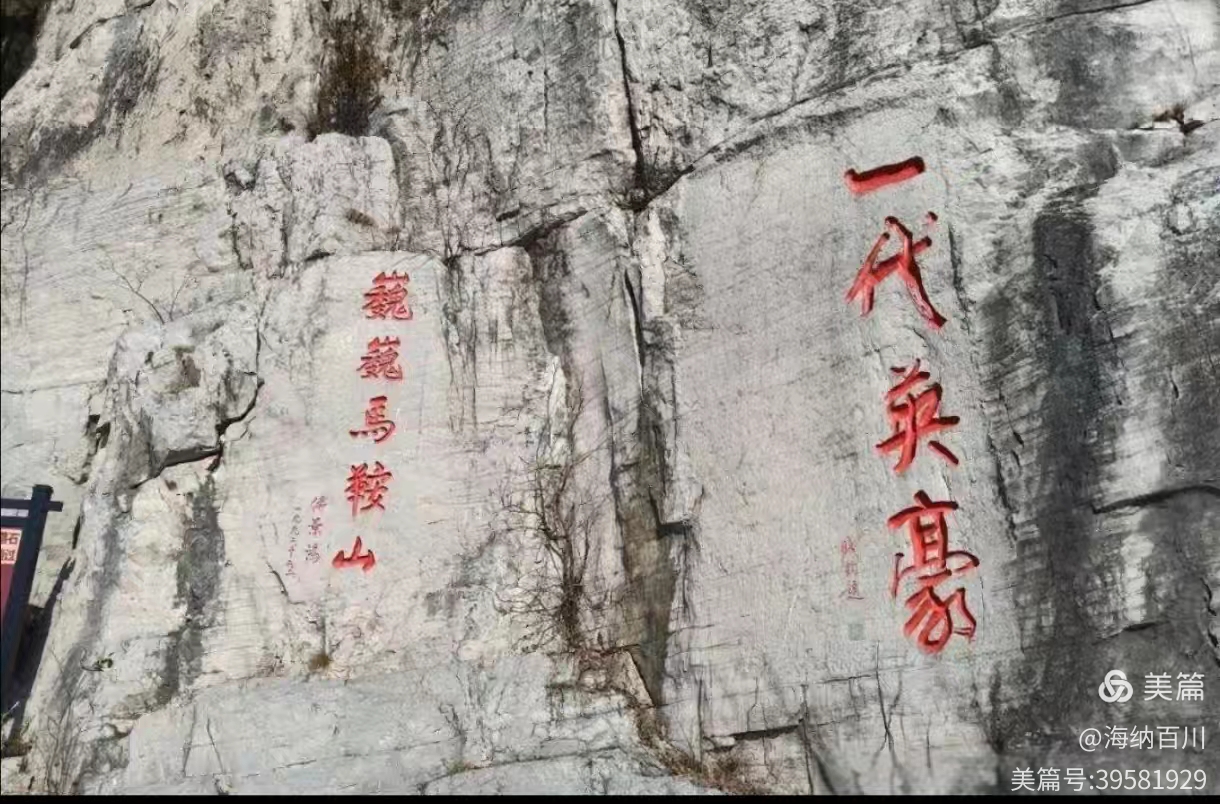 一代英豪
巍巍马鞍山
美篇
@海纳百川
美篇号:39581929